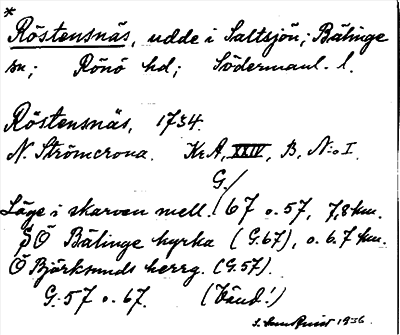 *
Röstensnäs, udde i Saltsjön; Bälinge
sn; Rönö hd; Södermanl. l.
Röstensnäs, 1734.
N. Strömcrona. Kr.A, XXIV, B, N:o I.
G./
Läge i skarven mell. 67 o. 57, 7,8 km.
SÖ Bälinge kyrka (G.67), o. 6.7 km.
Ö Björksunds herrg. (G.57).
G. 57 o. 67. (Vänd!)
1936